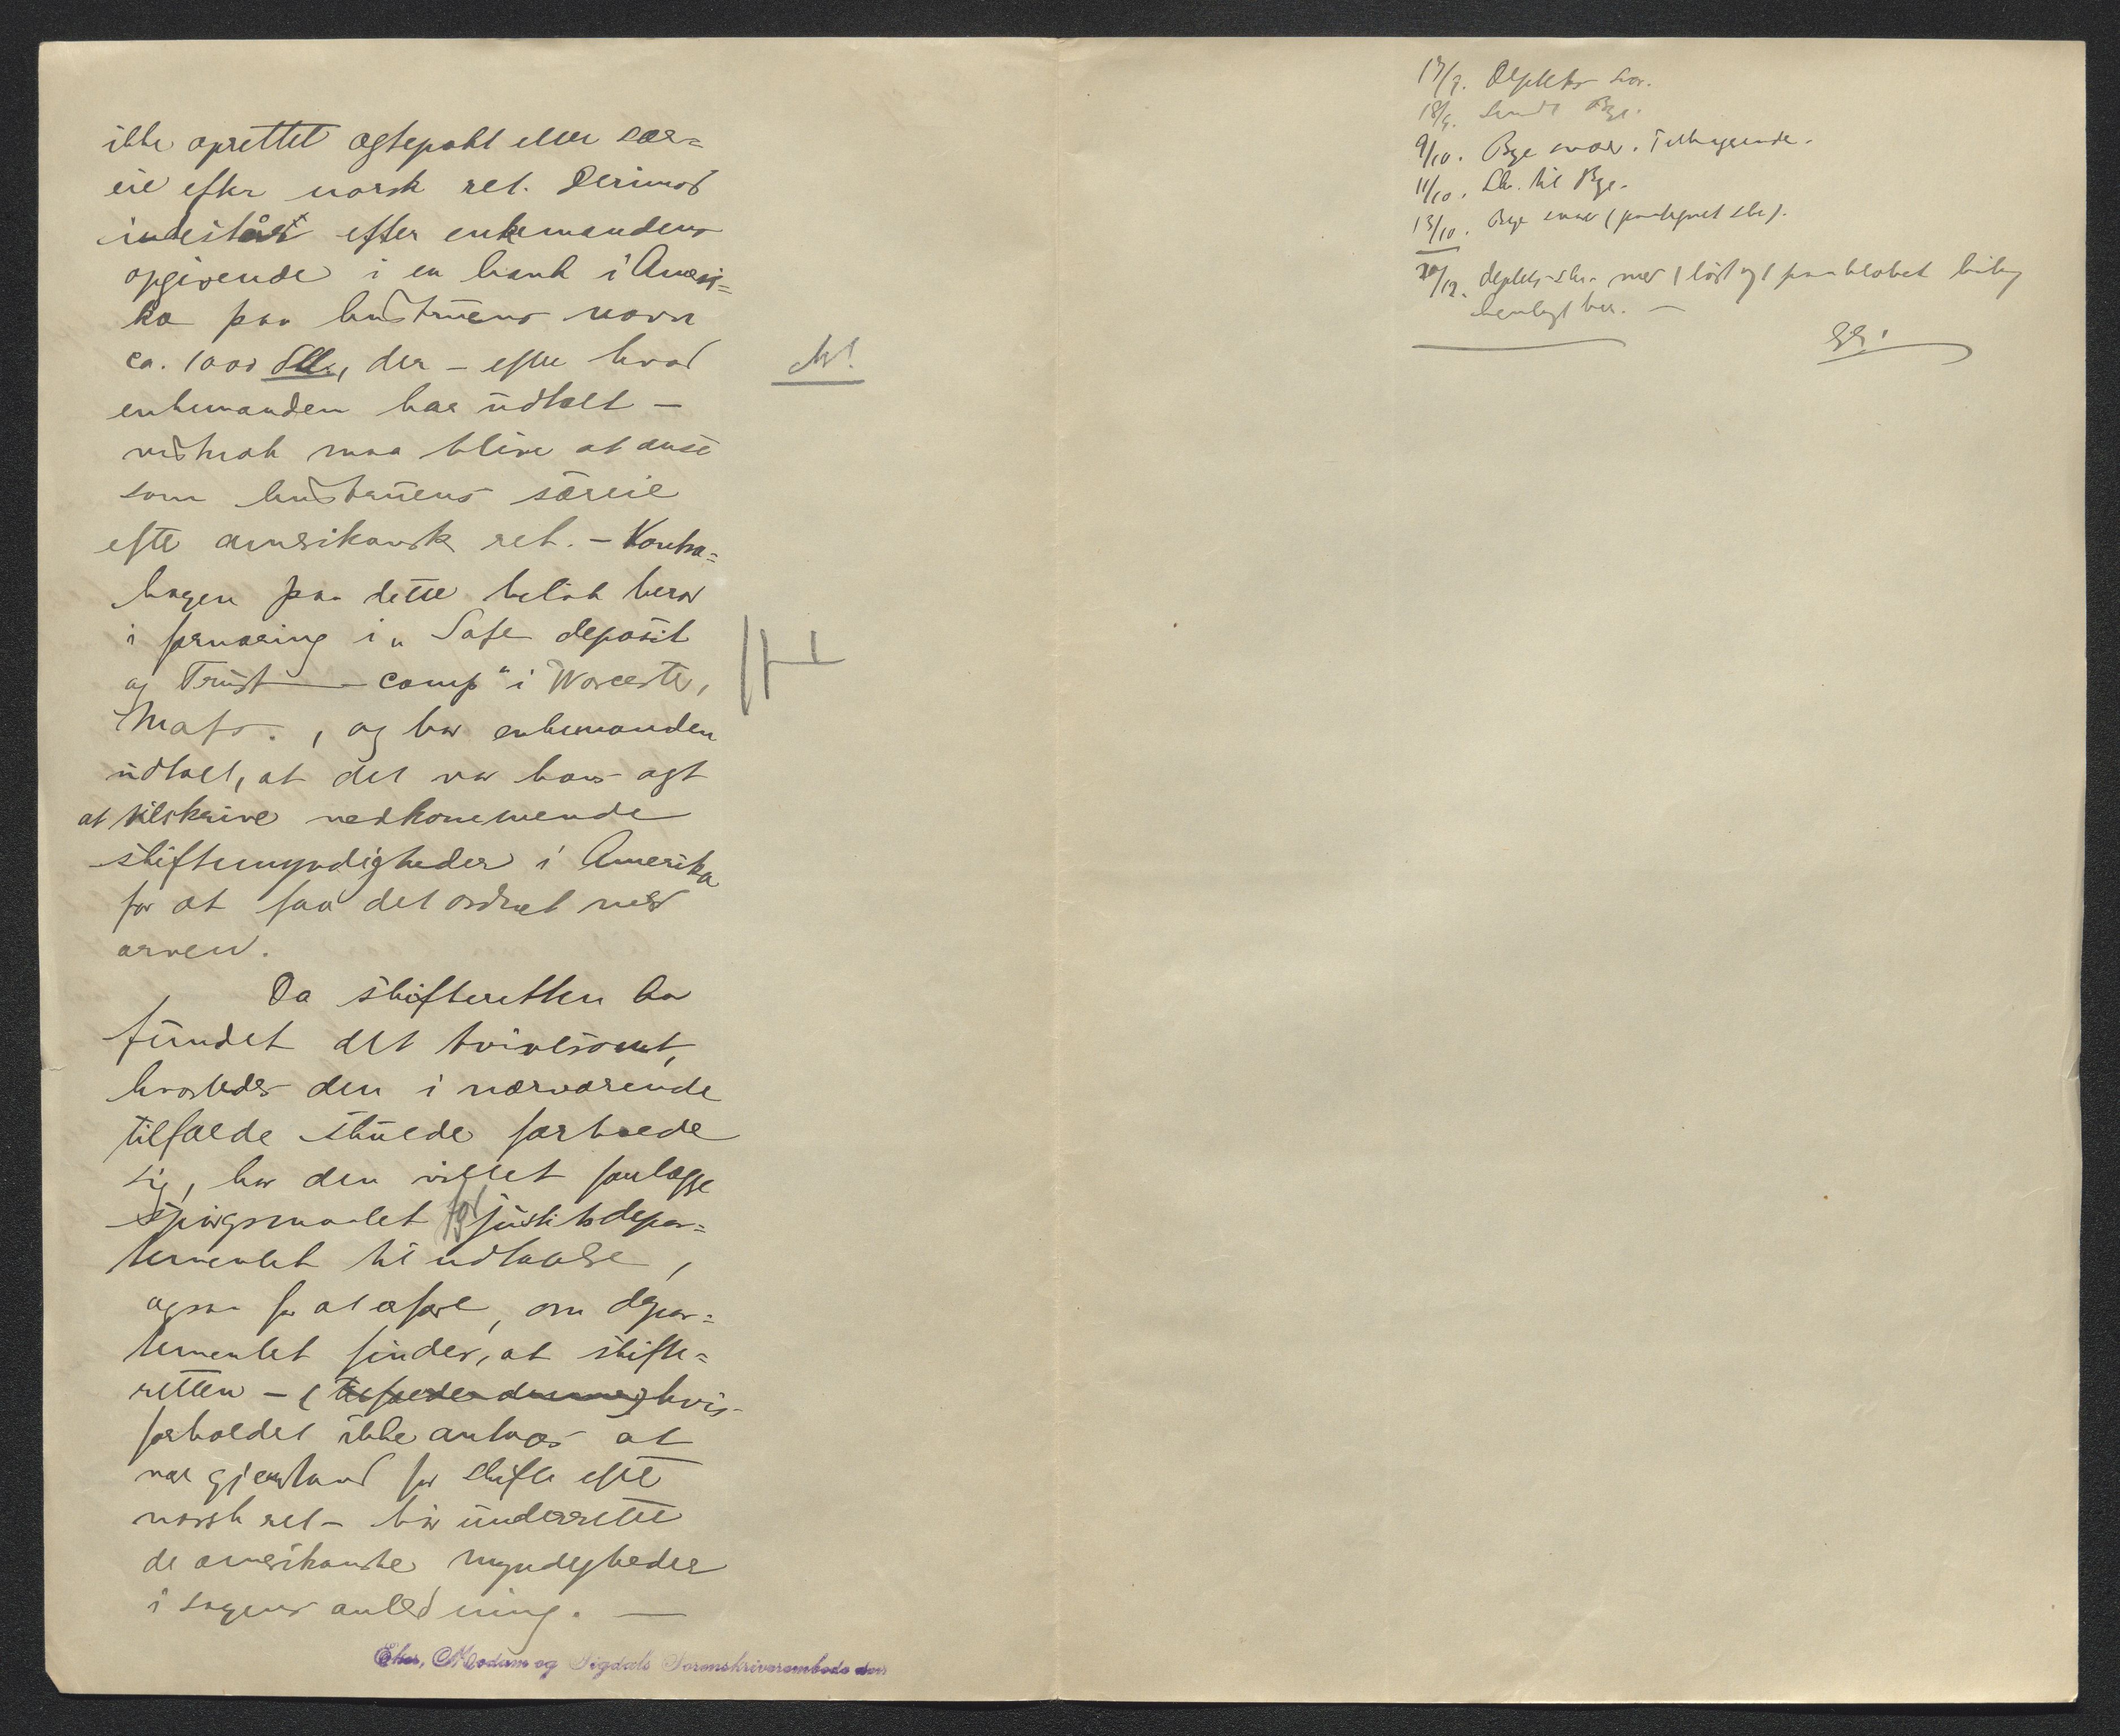 ikke oprettet ægtepakt eller sær=
eie efter norsk ret. Derimod
indestår efter enkemandens
opgivende i en bank i Ameri=
ka paa hustruens navn
ca. 1000 Dll., der – efter hvad
enkemanden har udtalt –
maa blive at anse
som hustruens særeie
efter amerikansk ret. – Kontra=
bogen paa dette beløb beror
i forvaring i „Safe deposit
og Trust – comp" i Worcester,
Mass., og har enkemanden
udtalt, at det var hans agt
at tilskrive vedkommende
skiftemyndigheder i Amerika
for at faa det ordnet med
arven.
Da skifteretten har
fundet det tvivlsomt,
hvorledes den i nærværende
tilfælde skulde forholde
sig, har den villet forelægge
spørgsmaalet for justitsdepar=
tementet til udtalelse,
ogsaa for at erfare, om depar=
tementet finder, at skifte=
retten – ( hvis
forholdet ikke antages at
være gjenstand for skifte efter
norsk ret – bør underrette
de amerikanske myndigheder
i sagens anledning. –
Eker, Modum og Sigdals Sorenskriverembede den
17/9. Deptets svar.
18/9. Sendt Bye.
9/10. Bye svar. Tilbagesendt.
11/10. Skr. til Bye.
13/10. Bye svar (paategnet skr).
20/12. deptets skr. med
henlagt her. –